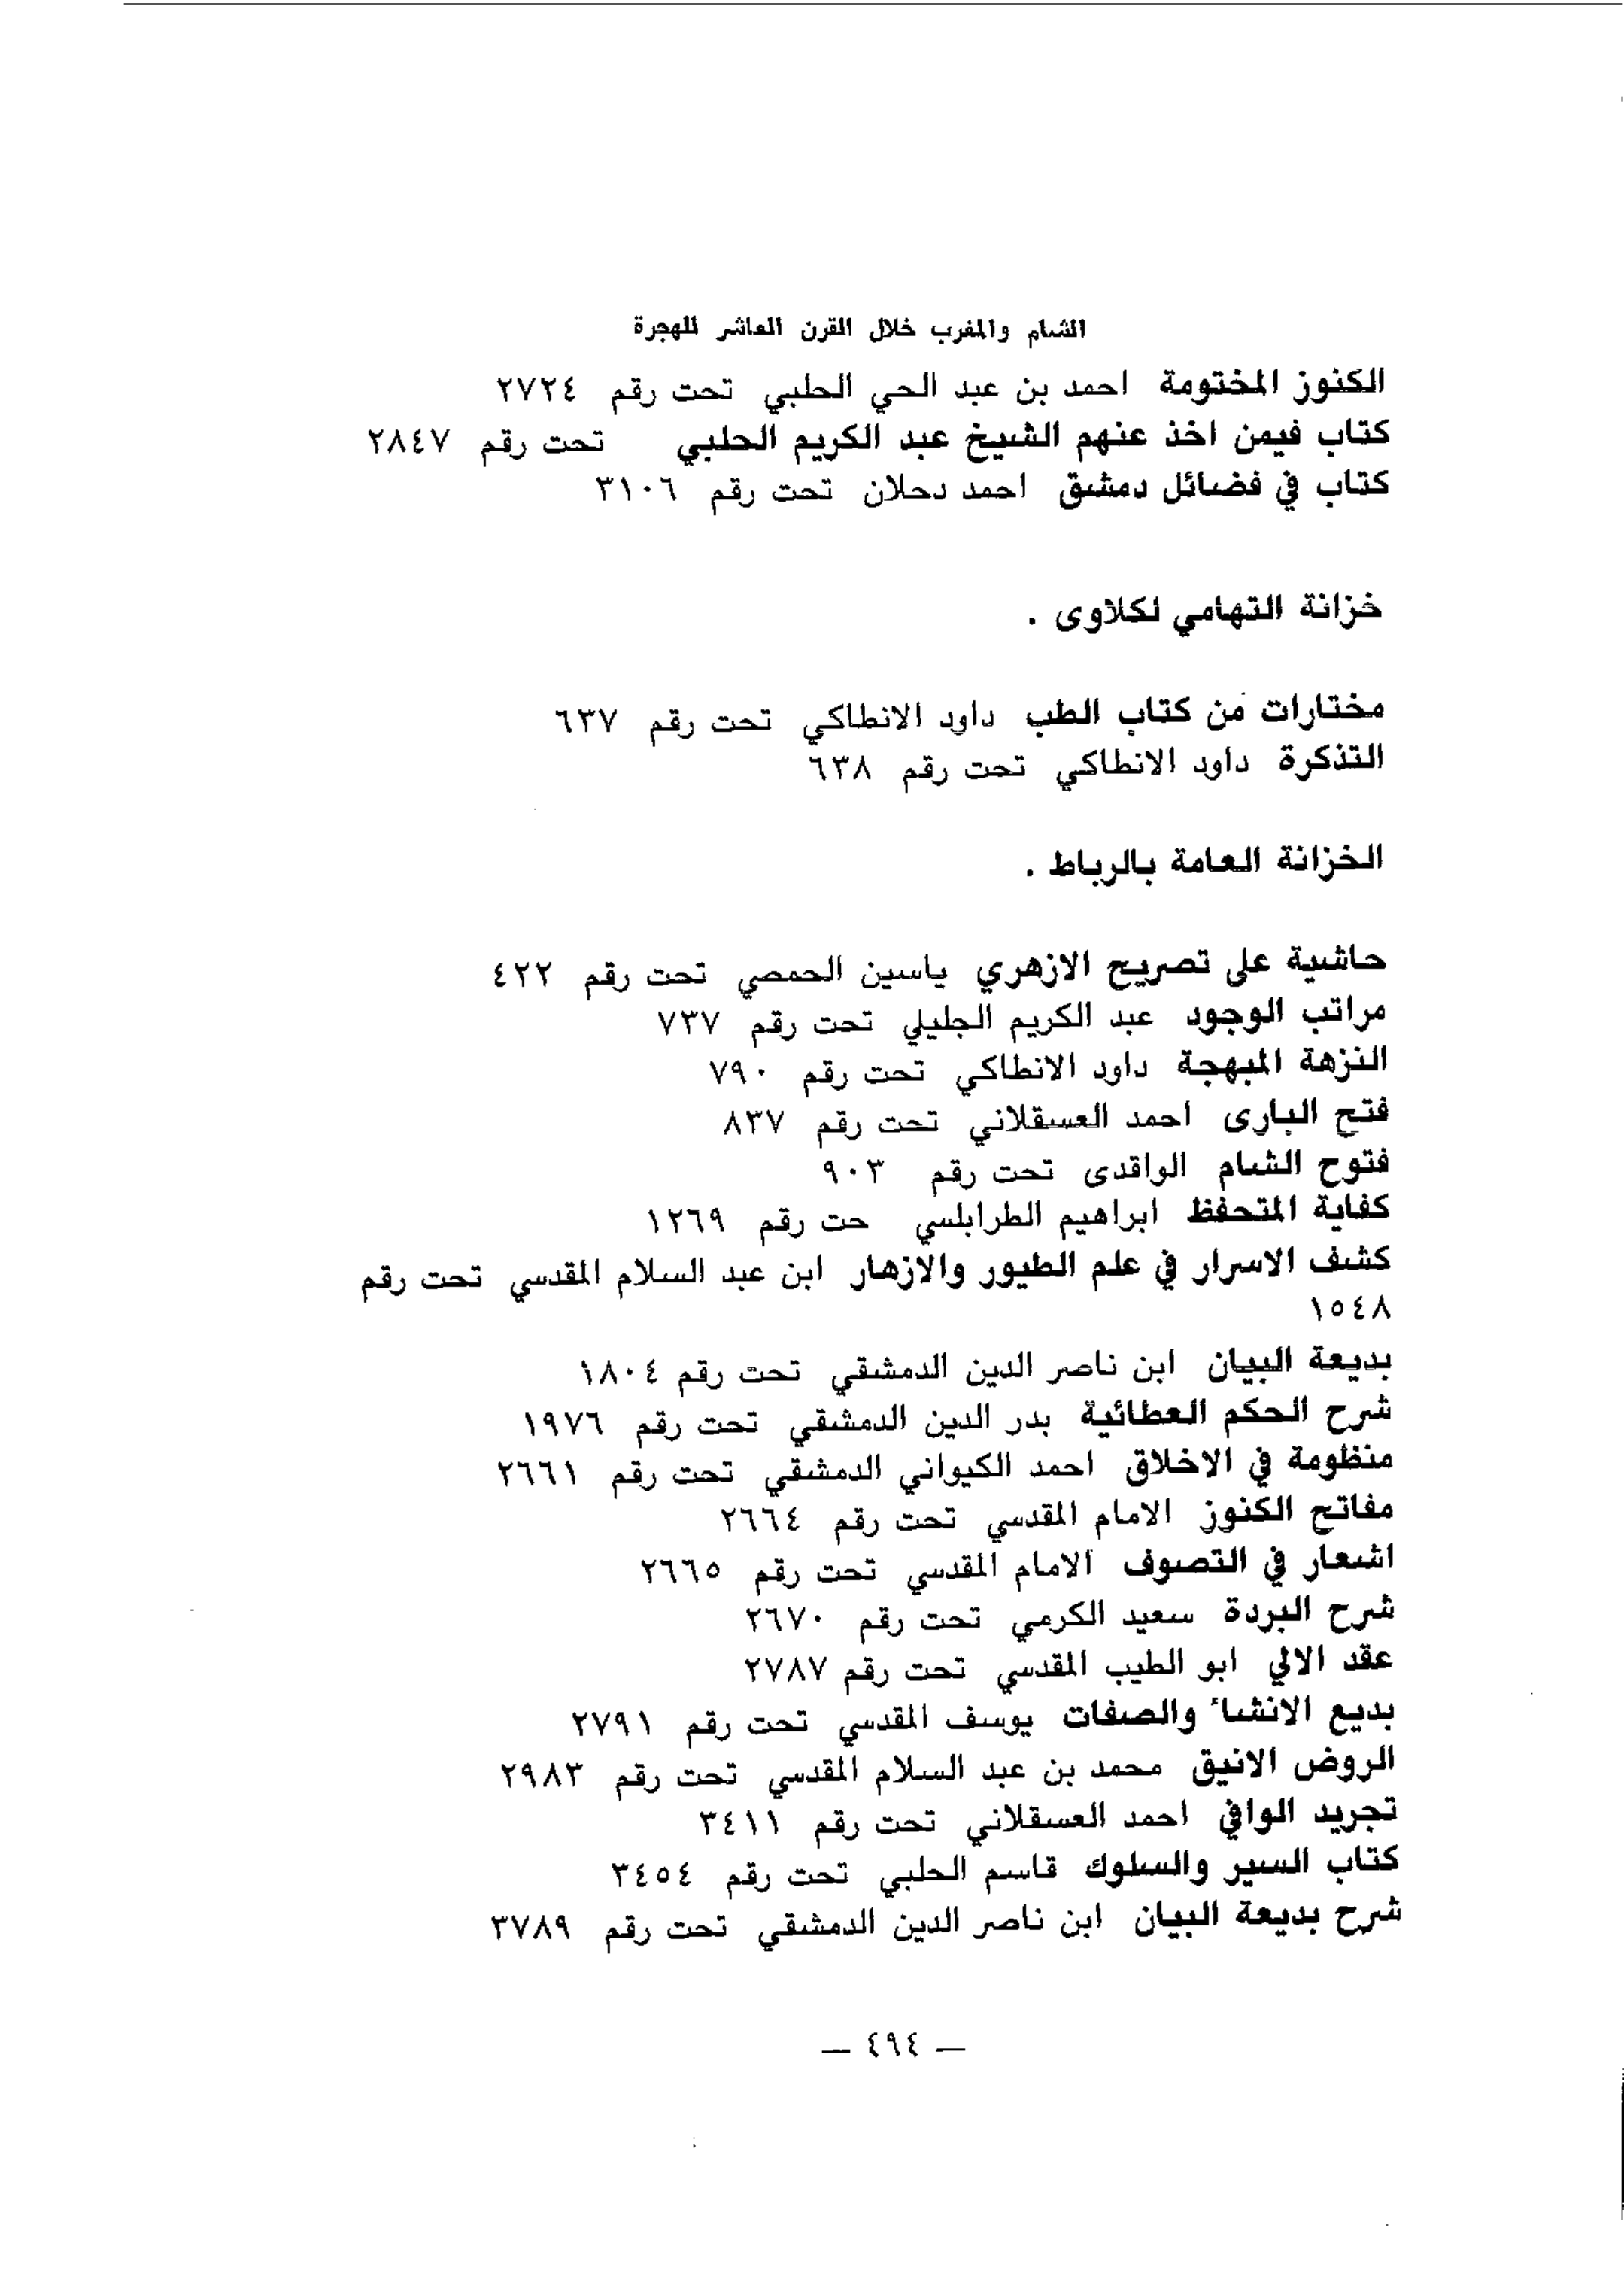 الشام والمغرب خلال القرن العاشر للهجرة
الكنوز المختومة احمد بن عبد الحي الحلبي تحت رقم ٢٧٢٤
كتاب فيمن اخذ عنهم الشيخ عبد الكريم الحلبي تحت رقم ٢٨٤٧
كتاب في فضائل دمشق احمد دحلان تحت رقم ٣١٠٦
خزانة التهامي لكلاوى .
مختارات من كتاب الطب داود الانطاكي تحت رقم ٦٣٧
التذكرة داود الانطاكي تحت رقم ٦٣٨
الخزانة العامة بالرباط .
حاشية على تصريح الازهري ياسين الحمصي تحت رقم ٤٢٢
مراتب الوجود عبد الكريم الجليلي تحت رقم ٧٣٧
النزهة المبهجة داود الانطاكي تحت رقم ٧٩٠
فتح البارى احمد العسقلاني تحت رقم ٨٣٧
فتوح الشام الواقدى تحت رقم ٩٠٣
كفاية المتحفظ ابراهيم الطرابلسي حت رقم ١٢٦٩
كشف الاسرار في علم الطيور والازهار ابن عبد السلام المقدسي تحت رقم
١٥٤٨
بديعة البيان ابن ناصر الدين الدمشقي تحت رقم ١٨٠٤
شرح الحكم العطائية بدر الدين الدمشقي تحت رقم ١٩٧٦
منظومة في الاخلاق احمد الكيواني الدمشقي تحت رقم ٢٦٦١
مفاتح الكنوز الامام المقدسي تحت رقم ٢٦٦٤
اشعار في التصوف الامام المقدسي تحت رقم ٢٦٦٥
شرح البردة سعيد الكرمي تحت رقم ٢٦٧٠
عقد الالي ابو الطيب المقدسي تحت رقم ٢٧٨٧
بديع الانشاء والصفات يوسف المقدسي تحت رقم ٢٧٩١
الروض الانيق محمد بن عبد السلام المقدسي تحت رقم ٢٩٨٣
تجريد الوافي احمد العسقلاني تحت رقم ٣٤١١
كتاب السير والسلوك قاسم الحلبي تحت رقم ٣٤٥٤
شرح بديعة البيان ابن ناصر الدين الدمشقي تحت رقم ٣٧٨٩
— ٤٩٤ —